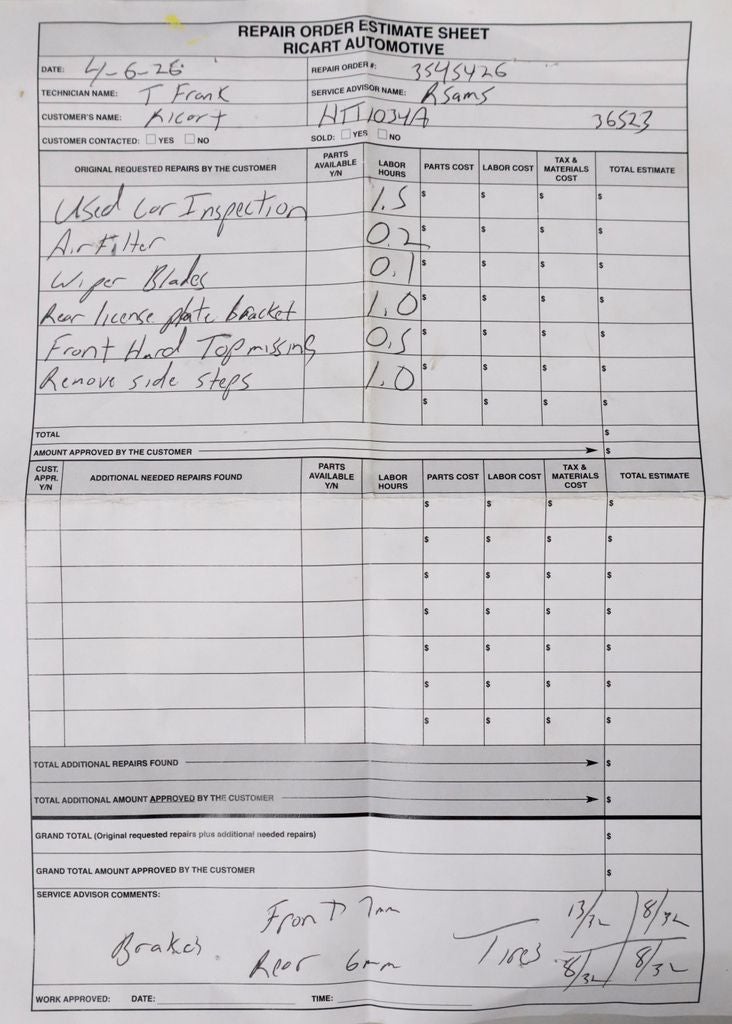 REPAIR ORDER ESTIMATE SHEET
RICART AUTOMOTIVE
DATE: 4-6-26 REPAIR ORDER #: 3545426
TECHNICIAN NAME: T Frank SERVICE ADVISOR NAME: RSams
CUSTOMER'S NAME: Ricart HTI1034A 36523
CUSTOMER CONTACTED: YES NO SOLD: YES NO
ORIGINAL REQUESTED REPAIRS BY THE CUSTOMER PARTS AVAILABLE Y/N LABOR HOURS PARTS COST LABOR COST TAX & MATERIALS COST TOTAL ESTIMATE
Used Car Inspection 1.5 $ $ $ $
Air Filter 0.2 $ $ $ $
Wiper Blades 0.1 $ $ $ $
Rear license plate bracket 1.0 $ $ $ $
Front Hard Top missing 0.5 $ $ $ $
Remove side steps 1.0 $ $ $ $
$ $ $ $
TOTAL $
AMOUNT APPROVED BY THE CUSTOMER $
CUST. APPR. Y/N ADDITIONAL NEEDED REPAIRS FOUND PARTS AVAILABLE Y/N LABOR HOURS PARTS COST LABOR COST TAX & MATERIALS COST TOTAL ESTIMATE
$ $ $ $
$ $ $ $
$ $ $ $
$ $ $ $
$ $ $ $
$ $ $ $
$ $ $ $
TOTAL ADDITIONAL REPAIRS FOUND $
TOTAL ADDITIONAL AMOUNT APPROVED BY THE CUSTOMER $
GRAND TOTAL (Original requested repairs plus additional needed repairs) $
GRAND TOTAL AMOUNT APPROVED BY THE CUSTOMER $
SERVICE ADVISOR COMMENTS:
Front 7mm 13/32 8/32
Brakes Rear 6mm Tires 8/32 8/32
WORK APPROVED: DATE: TIME: